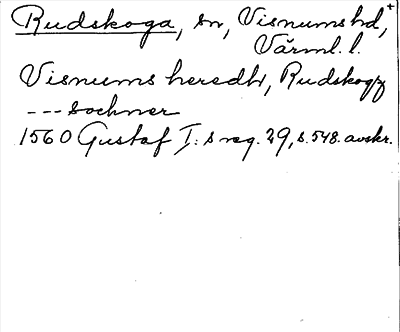 Rudskoga, sn, Visnums hd,+
Värml. l.
Visnums heredh, Rudskogz
--- sochner
1560 Gustaf I:s reg. 29, s. 548. avskr.